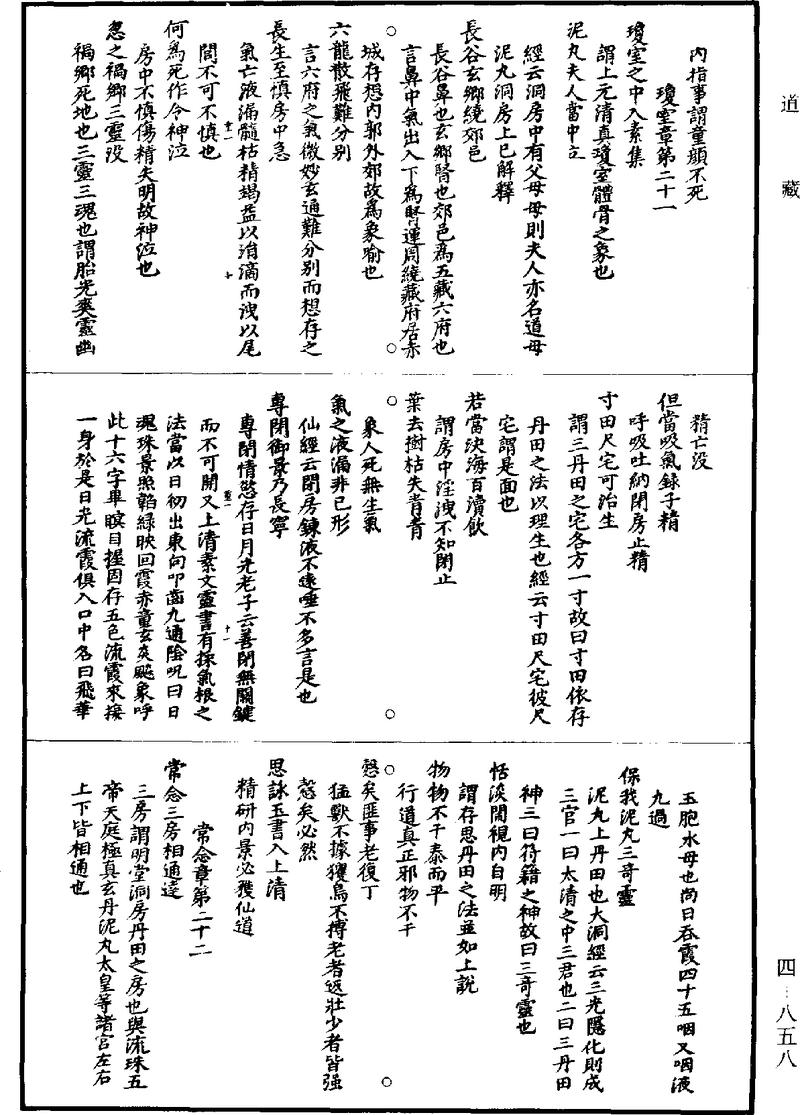 道藏
內指事謂童顏不死
瓊室章第二十一
瓊室之中八素集
謂上元清真瓊室體骨之象也
泥丸夫人當中立
經云洞房中有父母母則夫人亦名道母
泥丸洞房上已解釋
長谷玄鄉繞郊邑
長谷鼻也玄鄉腎也郊邑為五藏六府也
言鼻中氣出入下為腎運周繞藏府居赤
城存想內郭外郊故為象喻也
六龍散飛難分別
言六府之氣微妙玄通難分別而想存之
長生至慎房中急
氣亡液漏髓枯精竭益以涓滴而洩以尾
閭不可不慎也
何為死作令神泣
房中不慎傷精失明故神泣也
忽之禍鄉三靈沒
禍鄉死地也三靈三魂也謂胎光爽靈幽
精亡沒
但當吸氣錄子精
呼吸吐納閉房止精
寸田尺宅可治生
謂三丹田之宅各方一寸故曰寸田依存
丹田之法以理生也經云寸田尺宅彼尺
宅謂是面也
若當決海百瀆飲
謂房中淫洩不知閉止
葉去樹枯失青青
象人死無生氣
氣亡液漏非己形
仙經云閉房鍊液不遠唾不多言是也
專閉御景乃長寧
專閉情慾存日月光老子云善閉無關鍵
而不可開又上清紫文靈書有採氣根之
法當以日初出東向叩齒九通陰呪曰日
魂珠景照韜綠映回霞赤童玄炎飈象呼
此十六字畢瞑目握固存五色流霞來接
一身於是日光流霞俱入口中名曰飛華
玉胞水母也向日吞霞四十五咽又咽液
九過
保我泥丸三奇靈
泥丸上丹田也大洞經云三光隱化則成
三官一曰太清之中三君也二曰三丹田
神三曰符籍之神故曰三奇靈也
恬淡閑視內自明
謂存思丹田之法並如上說
物物不干泰而平
行道真正邪物不干
慤矣匪事老復丁
猛獸不據玃鳥不搏老者返壯少者皆強
慤矣必然
思詠玉書入上清
精研內景必獲仙道
常念章第二十二
常念三房相通達
三房謂明堂洞房丹田之房也與流珠五
帝天庭極真玄丹泥丸太皇等諸宮左右
上下皆相通也
四-八五八